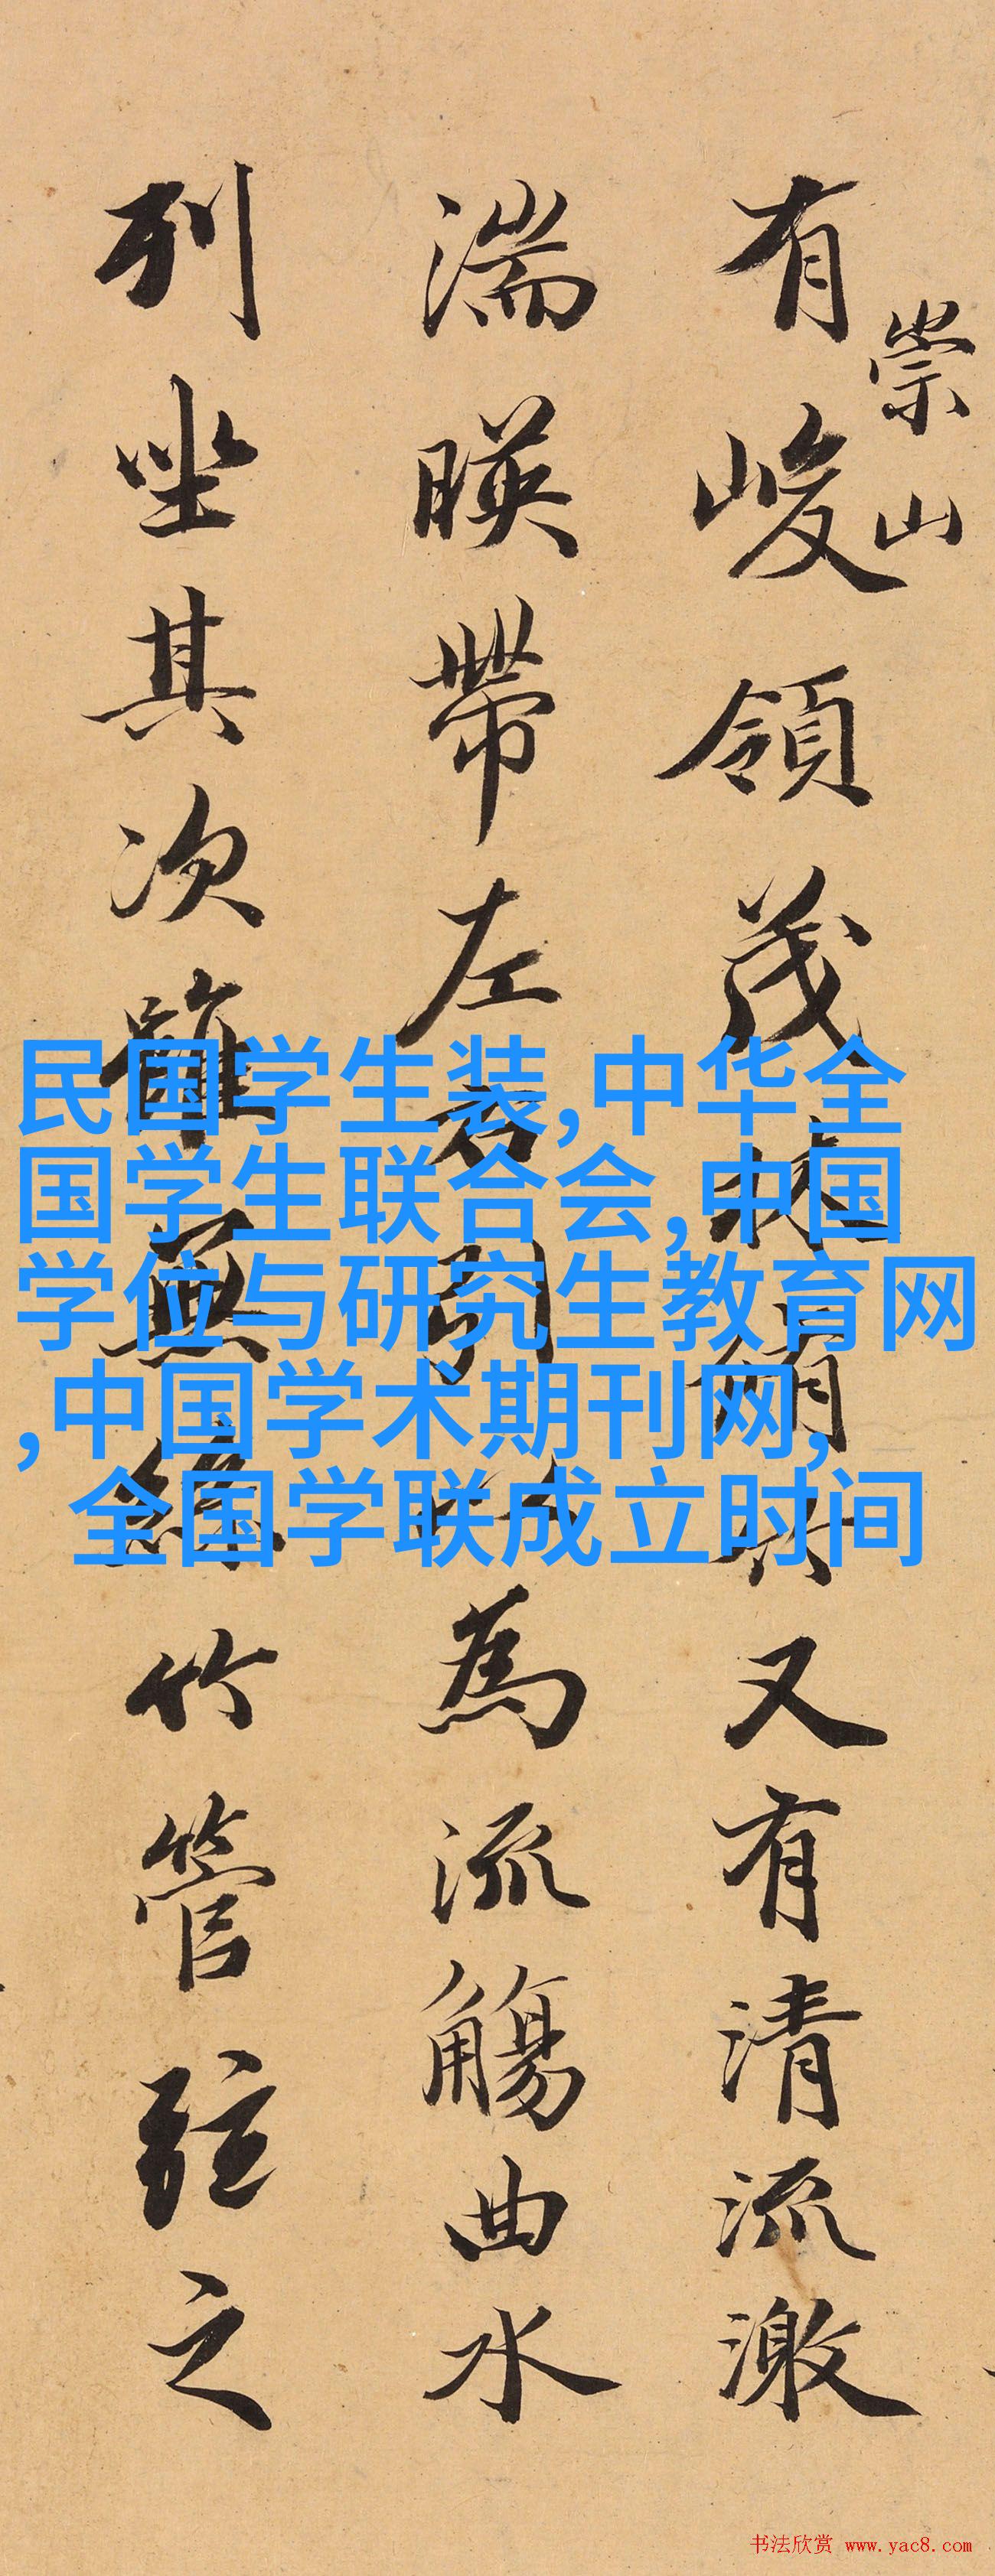 崇山
有峻領茂林脩竹又有清流激
湍暎帶左右引以為流觴曲水
列坐其次雖無絲竹管弦之
民国学生装,中华全
国学生联合会,中国
学位与研究生教育网
,中国学术期刊网,
全国学联成立时间
书法欣赏 www.yac8.com